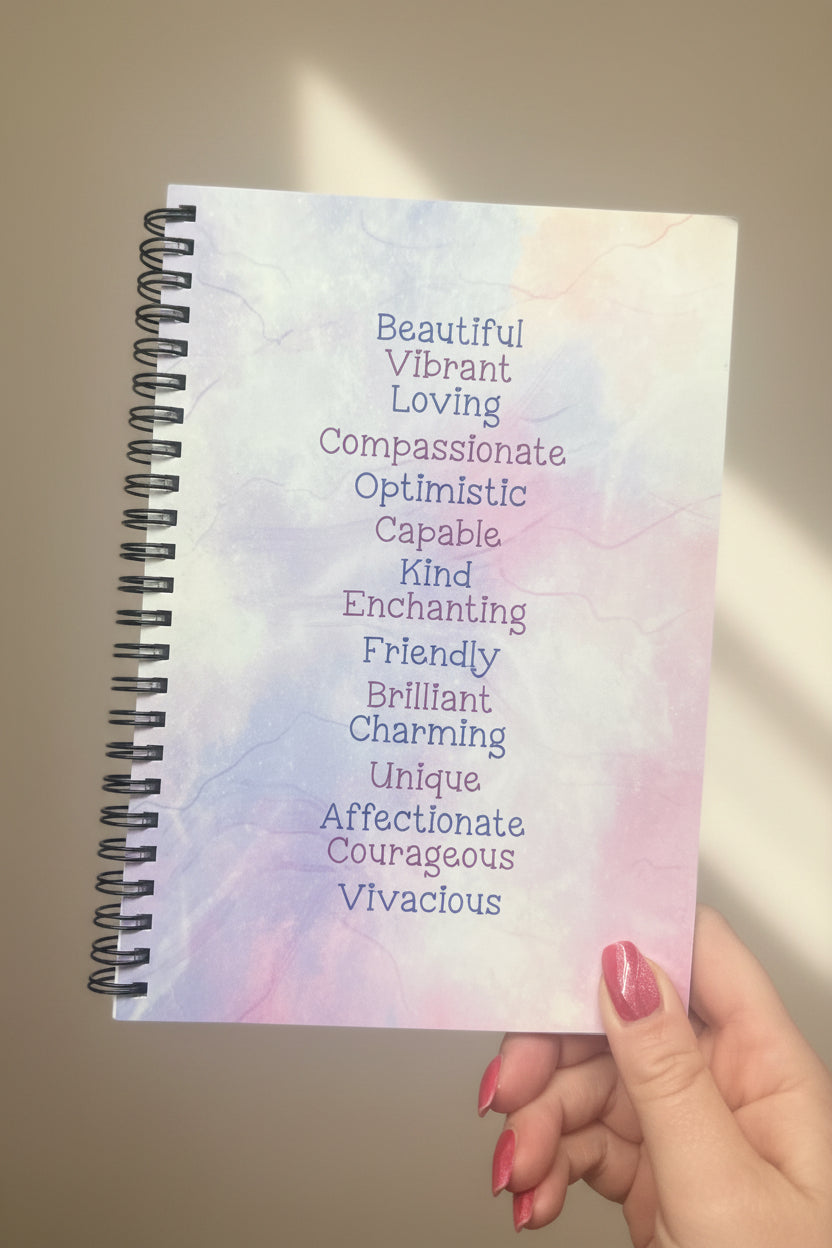 Beautiful
Vibrant
Loving
Compassionate
Optimistic
Capable
Kind
Enchanting
Friendly
Brilliant
Charming
Unique
Affectionate
Courageous
Vivacious